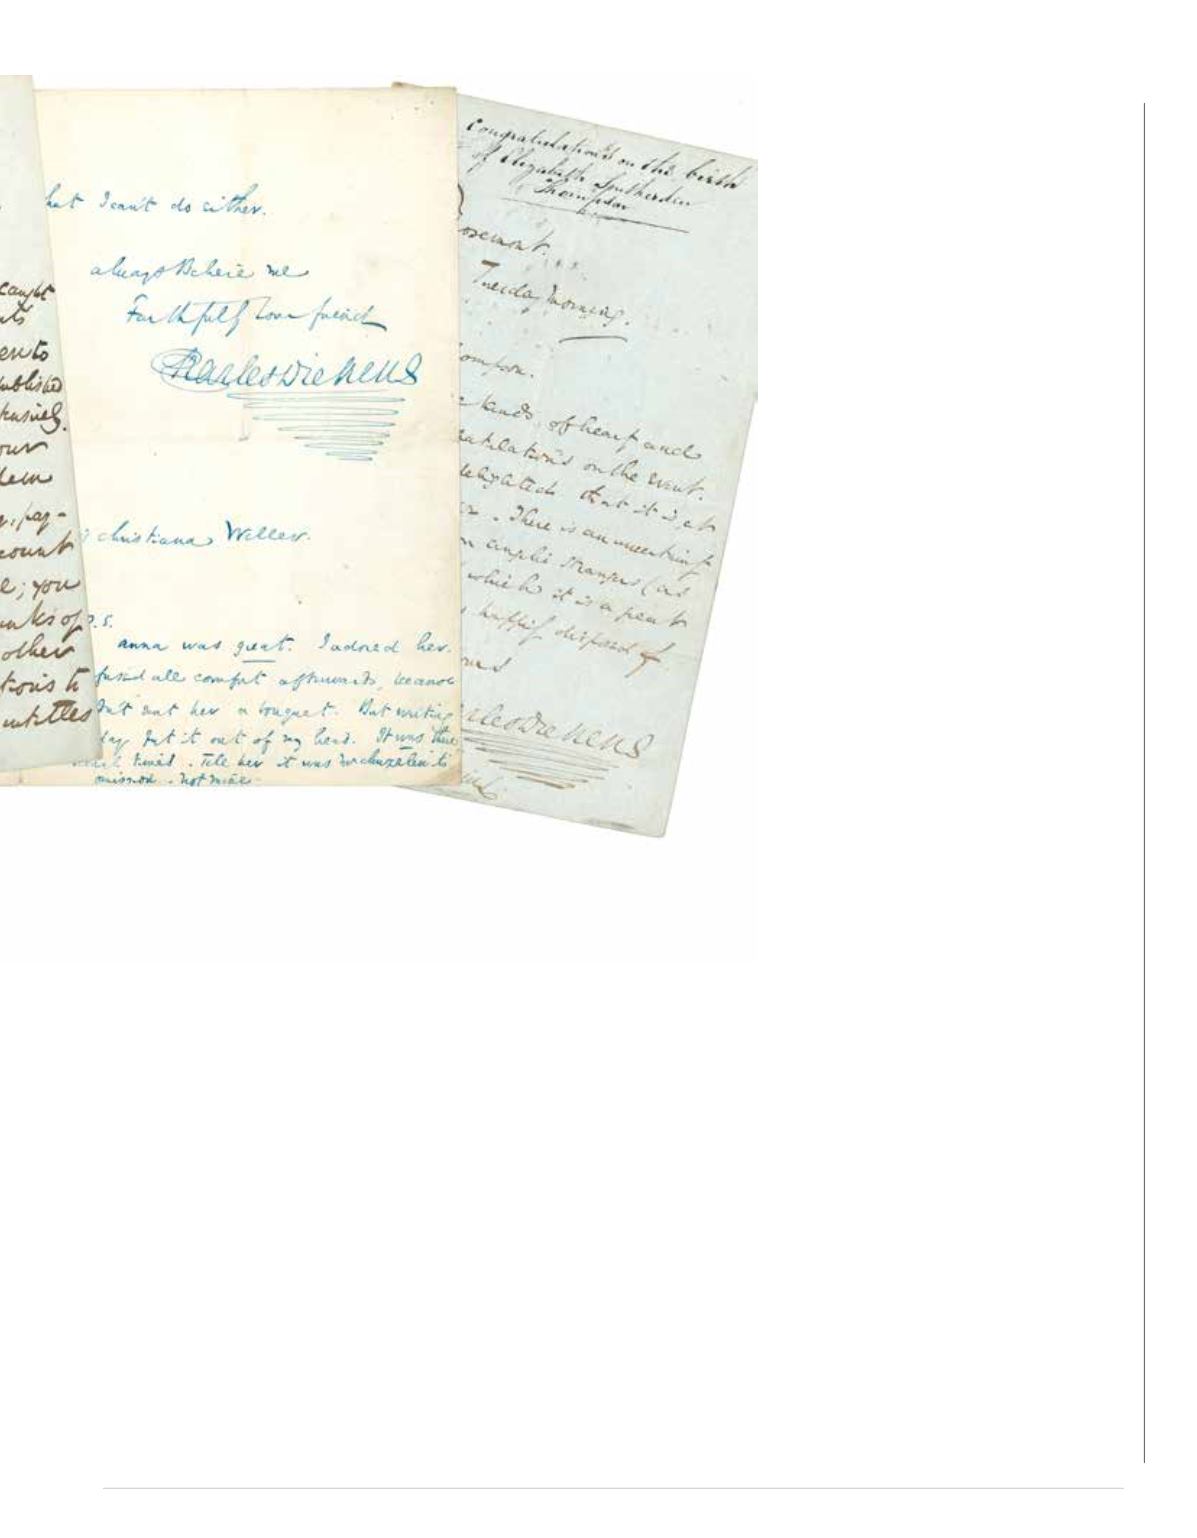 caught
en to
ublished
our
pay-
count
e; you
anks of
other
tions to
entitles
hat I can't do either.
always Believe me
Faithfully Your friend
Charles Dickens
Christiana Weller.
P.S.
anna was great. I adored her.
fused all comfort afterwards, because
dn't sent her a bouquet. But writing
day put it out of my head. It was there
Tell her it was
mission - not mine
Congratulations on the birth
of Elizabeth Southerden
Thompson
osemont.
Tuesday Morning.
ompson.
kinds of heart and
atulations on the event.
delighted that it is at
There is an uncertainty
angelic strangers (as
which it is a great
happily disposed of
ours
rles Dickens